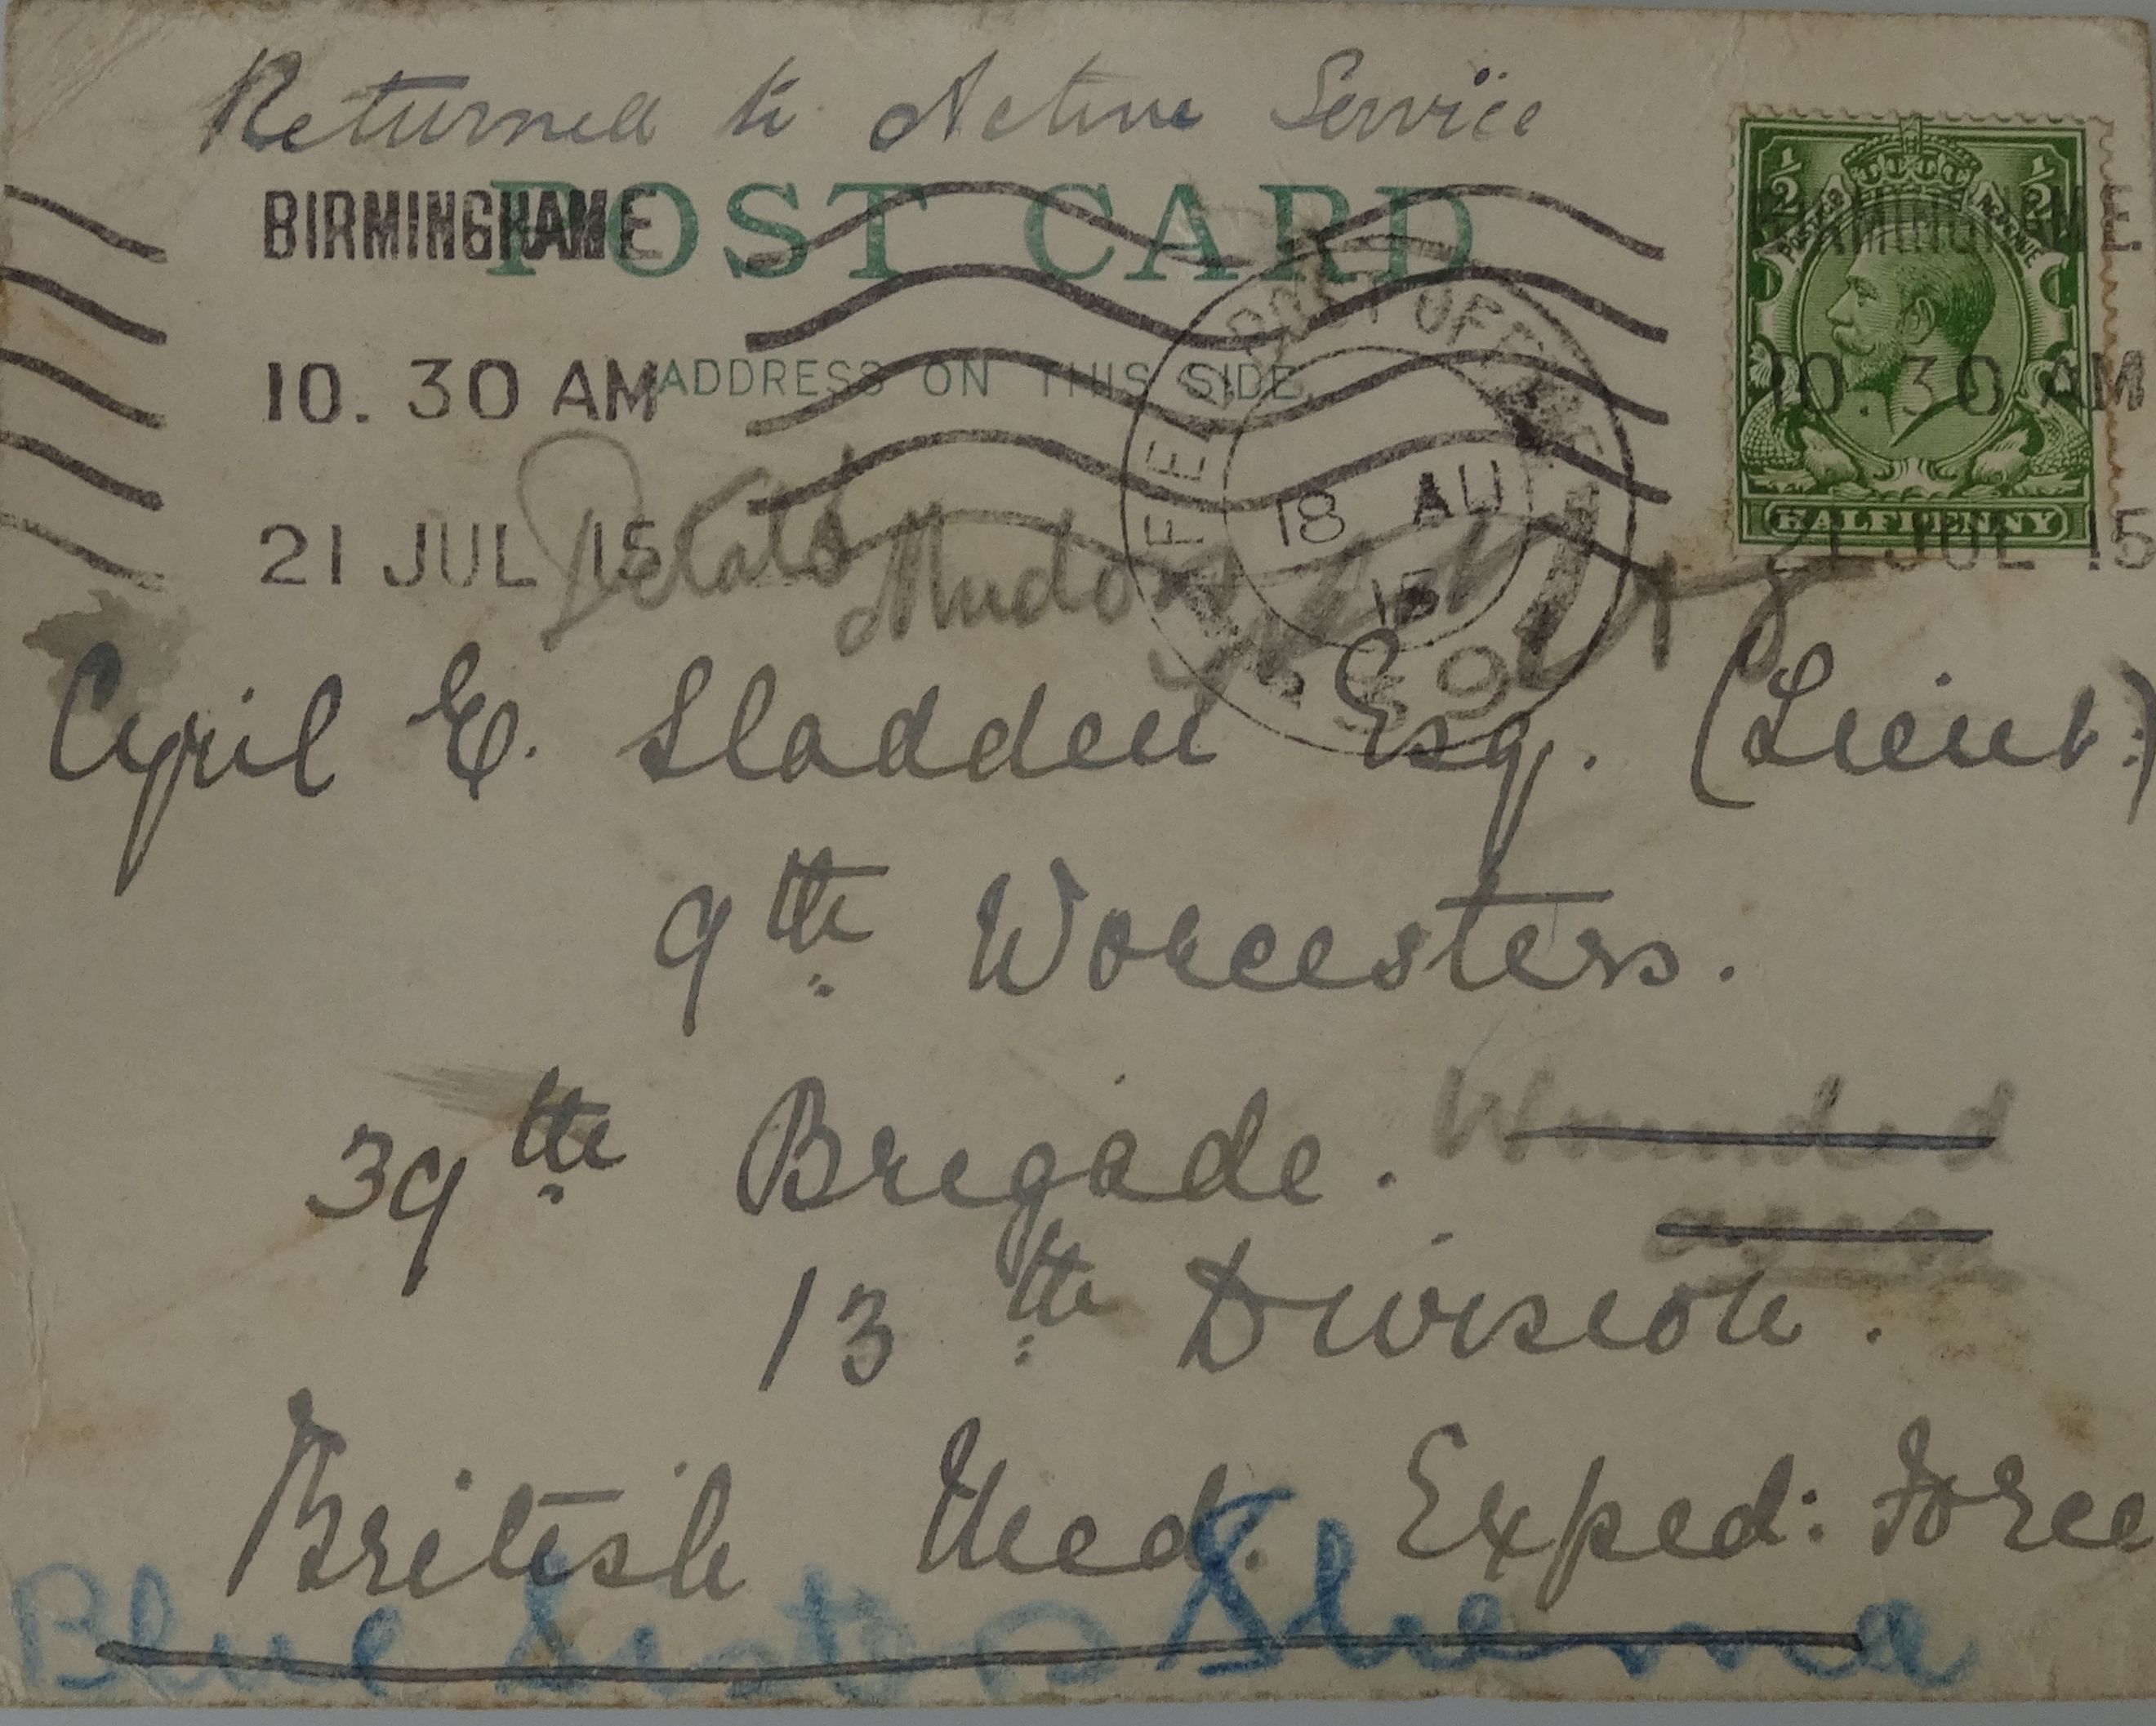 Returned to Active Service
POST CARD
BIRMINGHAM E
1/2 1/2
POSTAGE REVENUE
BIRMINGHAM E.
ADDRESS ON THIS SIDE
10. 30 AM
10. 30 AM
FIELD POST OFFICE
18 AU
15
39
21 JUL 15
HALFPENNY
21 JUL 15
Details
Mudros
Cyril E. Sladden Esq. (Lieut:)
9th Worcesters.
39th Brigade. Wounded
13th Division.
British Med. Exped: Force
Blue Sisters Sliema